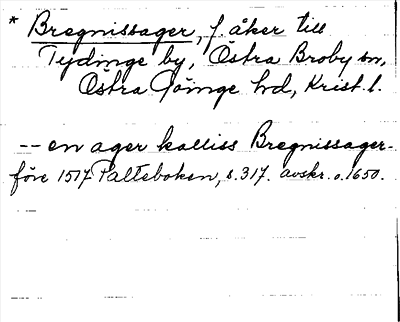 * Bregnissager, f. åker till
Tydinge by, Östra Broby sn,
Östra Göinge hd, Krist. l.
-- en ager kalliss Bregnissager -
före 1517 Palteboken, s. 317. avskr. o. 1650.